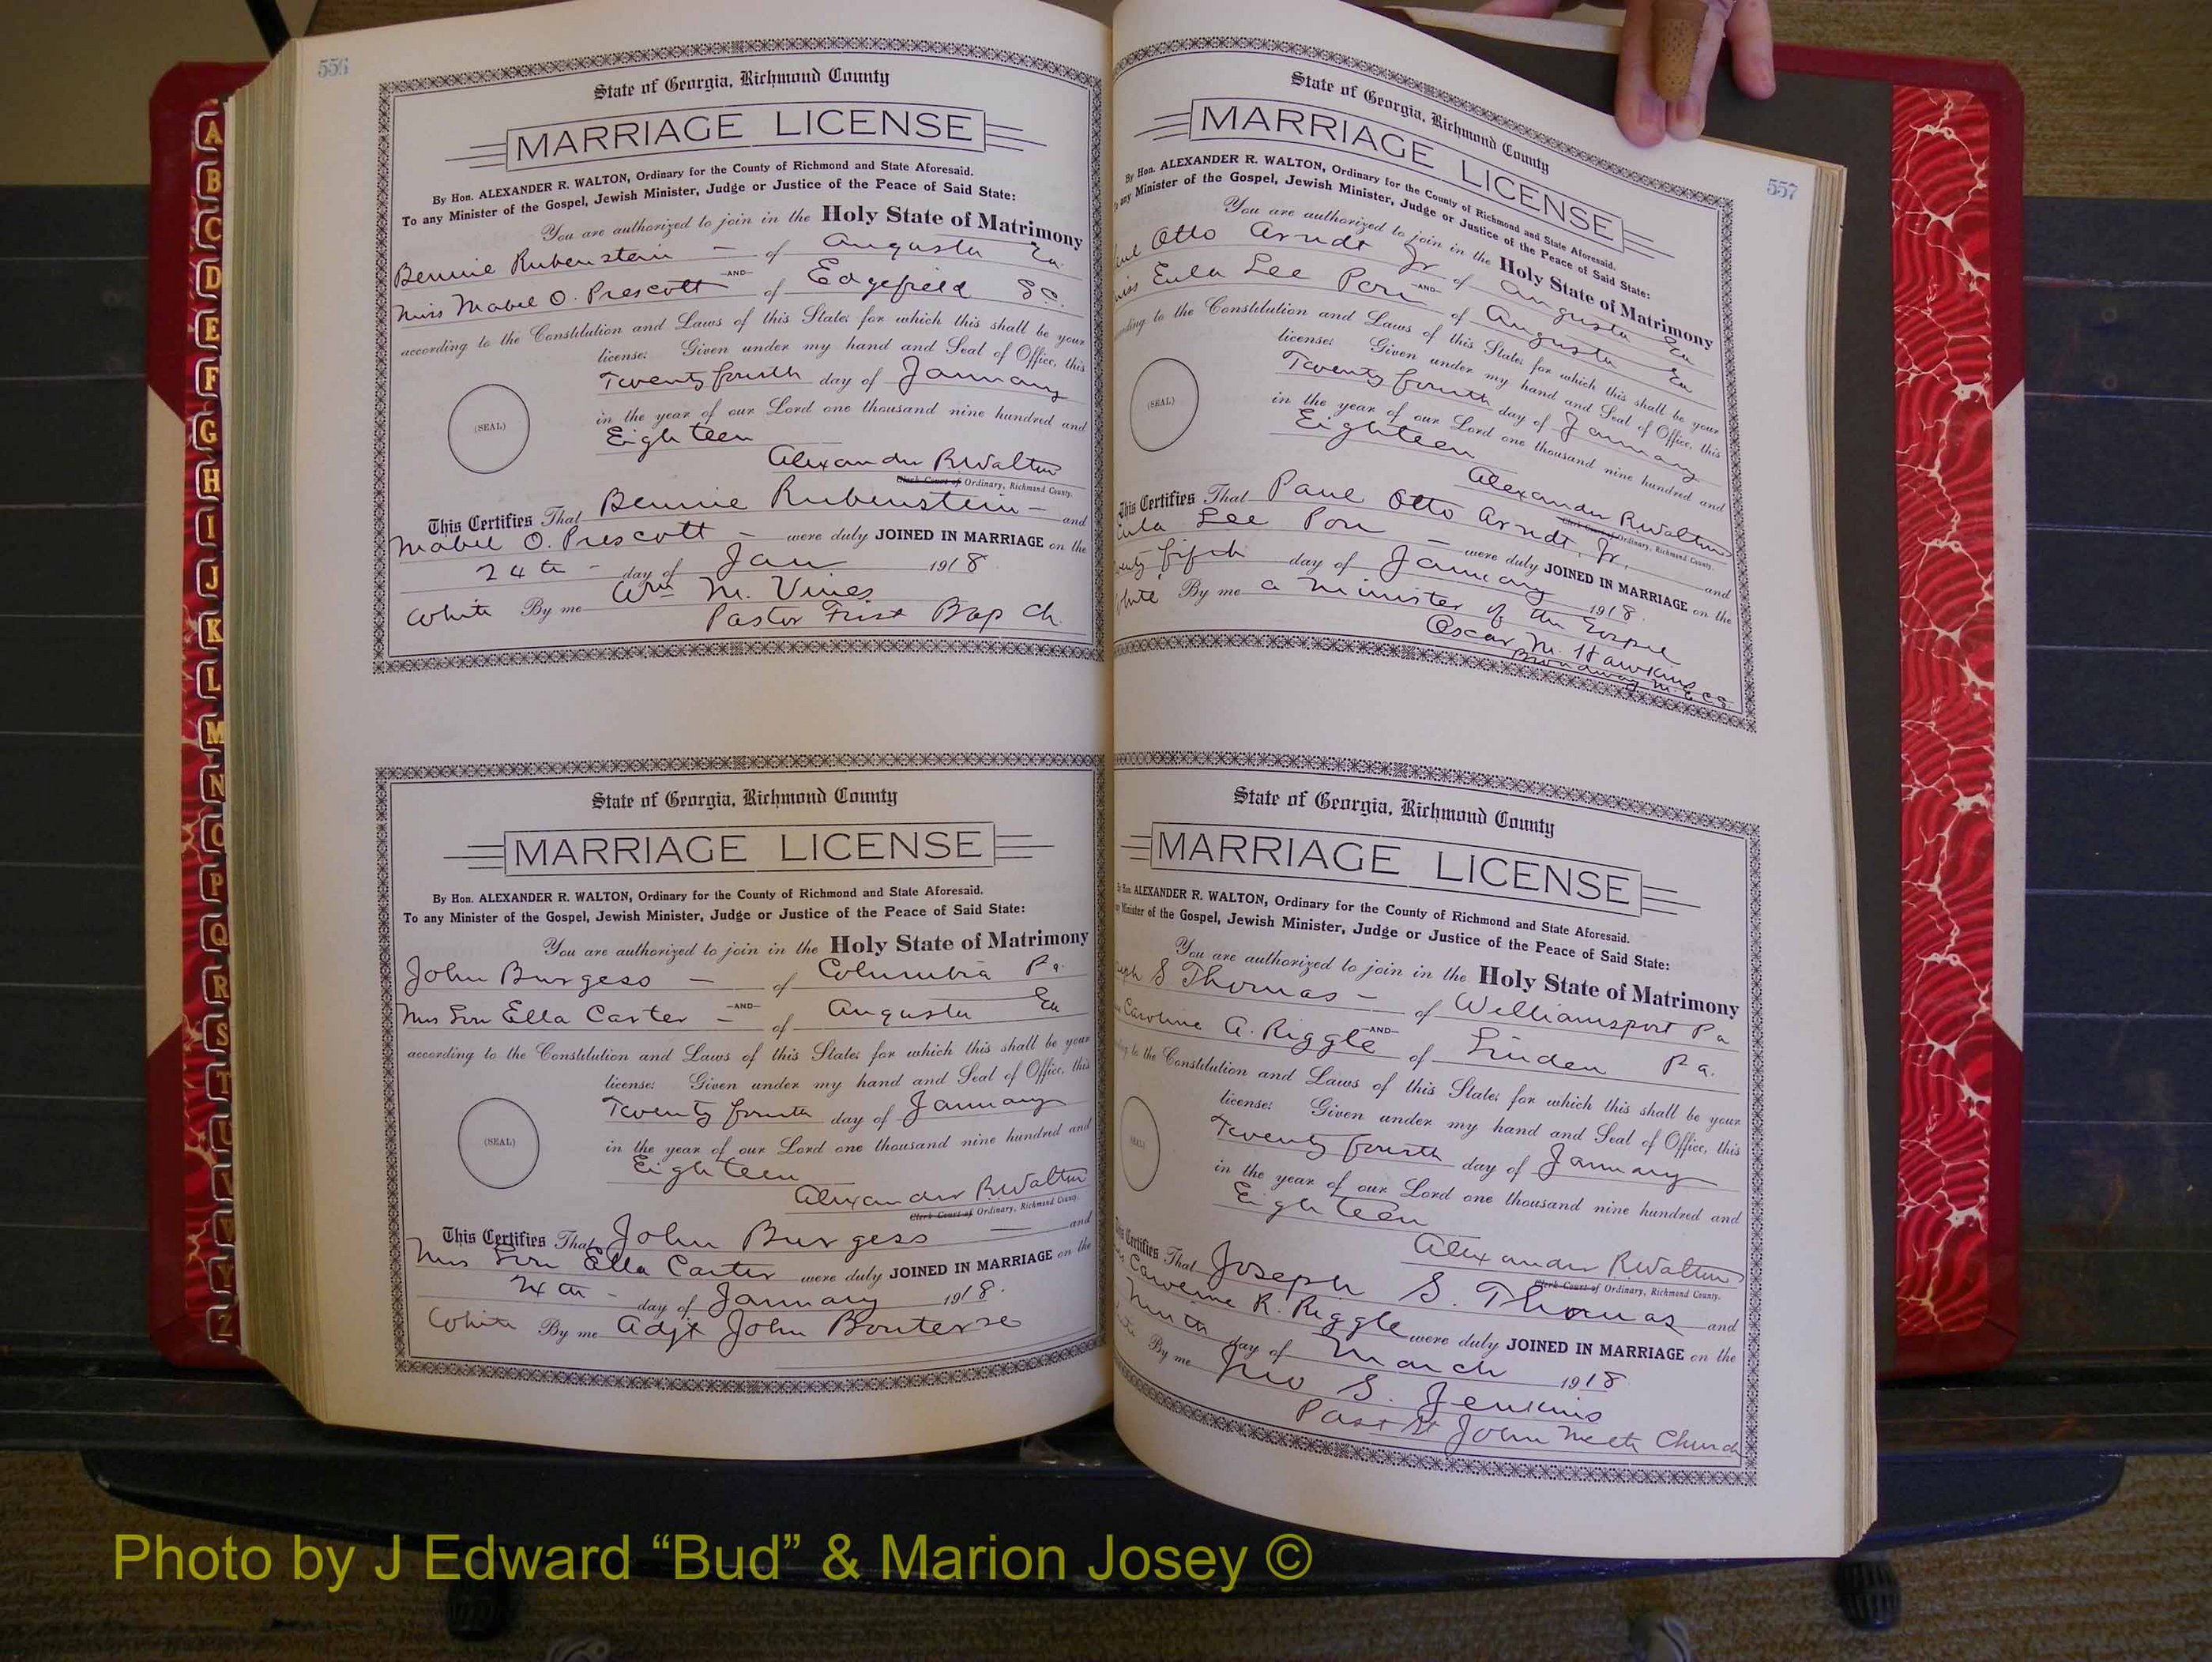 556
State of Georgia, Richmond County
MARRIAGE LICENSE
By Hon. ALEXANDER R. WALTON, Ordinary for the County of Richmond and State Aforesaid.
To any Minister of the Gospel, Jewish Minister, Judge or Justice of the Peace of Said State:
You are authorized to join in the Holy State of Matrimony
Bennie Rubenstein — of Augusta Ga.
—AND—
Miss Mabel O. Prescott of Edgefield S.C.
according to the Constitution and Laws of this State; for which this shall be your
license: Given under my hand and Seal of Office, this
Twenty fourth day of January
(SEAL)
in the year of our Lord one thousand nine hundred and
Eighteen
Alexander R. Walton
Clerk Court of Ordinary, Richmond County.
This Certifies That Bennie Rubenstein — and
Mabel O. Prescott — were duly JOINED IN MARRIAGE on the
24th - day of Jan 1918
White By me Wm M. Vines
Pastor First Bap Ch.
State of Georgia, Richmond County
MARRIAGE LICENSE
By Hon. ALEXANDER R. WALTON, Ordinary for the County of Richmond and State Aforesaid.
To any Minister of the Gospel, Jewish Minister, Judge or Justice of the Peace of Said State:
You are authorized to join in the Holy State of Matrimony
John Burgess — of Columbia Pa.
—AND—
Ella Carter — of Augusta Ga
according to the Constitution and Laws of this State; for which this shall be your
license: Given under my hand and Seal of Office, this
Twenty fourth day of January
(SEAL)
in the year of our Lord one thousand nine hundred and
Eighteen
Alexander R. Walton
Clerk Court of Ordinary, Richmond County.
This Certifies That John Burgess — and
Ella Carter were duly JOINED IN MARRIAGE on the
24th - day of January 1918.
White By me Adjt John Bouterse
557
State of Georgia, Richmond County
MARRIAGE LICENSE
By Hon. ALEXANDER R. WALTON, Ordinary for the County of Richmond and State Aforesaid.
any Minister of the Gospel, Jewish Minister, Judge or Justice of the Peace of Said State:
You are authorized to join in the Holy State of Matrimony
Otto Arndt Jr of Augusta Ga
—AND—
Eula Lee of Augusta Ga
to the Constitution and Laws of this State; for which this shall be your
license: Given under my hand and Seal of Office, this
Twenty fourth day of January
(SEAL)
in the year of our Lord one thousand nine hundred and
Eighteen
Alexander R. Walton
Clerk Court of Ordinary, Richmond County.
This Certifies That Paul Otto Arndt, Jr. and
Eula Lee — were duly JOINED IN MARRIAGE on the
fifth day of January 1918.
By me a Minister of the Gospel
Oscar M. Hawkins
Broadway M. E.
State of Georgia, Richmond County
MARRIAGE LICENSE
By Hon. ALEXANDER R. WALTON, Ordinary for the County of Richmond and State Aforesaid.
Minister of the Gospel, Jewish Minister, Judge or Justice of the Peace of Said State:
You are authorized to join in the Holy State of Matrimony
S Thomas — of Williamsport Pa
—AND—
Caroline A. Riggle of Linden Pa.
to the Constitution and Laws of this State; for which this shall be your
license: Given under my hand and Seal of Office, this
Twenty fourth day of January
(SEAL)
in the year of our Lord one thousand nine hundred and
Eighteen
Alexander R. Walton
Clerk Court of Ordinary, Richmond County.
Certifies That Joseph S. Thomas and
R. Riggle were duly JOINED IN MARRIAGE on the
day of March 1918
By me Jno S. Jenkins
Past St John Meth Church
Photo by J Edward “Bud” & Marion Josey ©
A
B
C
D
E
F
G
H
I
J
K
L
M
N
O
P
Q
R
S
T
U
V
W
Y
Z